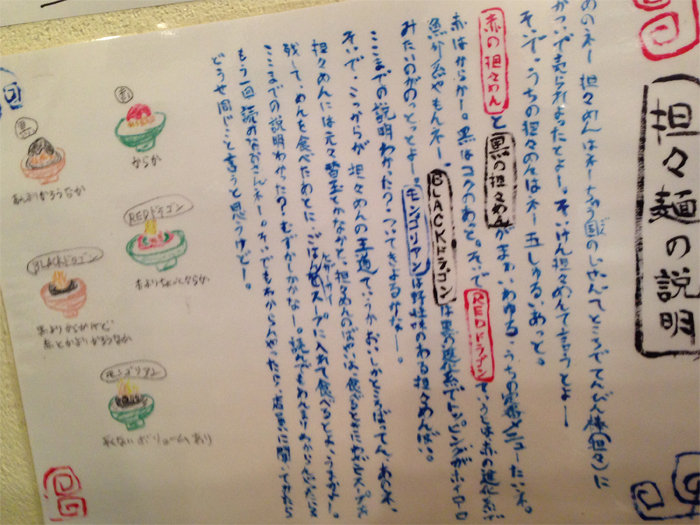 担々麺の説明
あのネー 担々めんはネー ちゅう国のしせんてところでてんびん棒(担々)に
かついで売られよったとよー。そいけん担々めんて言うとよー
そいで、うちの担々めんはネー 五しゅるいあっと。
赤の担々めんと黒の担々めんがまあいわゆる、うちの定番メニューたいネ。
赤はからかー。黒はコクのあっと。そいでREDドラゴンていうとは赤の進化系
魚介系やもんネー。BLACKドラゴンは黒の進化系でトッピングがホイコーロー
みたいのがのっとっとよー。モンゴリアンは野性味のある担々めんばい。
ここまでの説明わかった?ついてきよるかなー。
そいで、こっからが、担々めんの王道ていうか、おいしかところばってん、あのネ、
担々めんには元々替玉とかなかと。担々めんのばあいは、食べるときにひき肉とスープは
残して、めんを食べたあとに、ごはんをスープに入れて食べるとよー。うまかよー。
ここまでの説明わかった?むずかしかかなー。読んでもわかりにくいひとは
もう一回読めばよかたいネー。そいでもわからんかったら、店主に聞いてみたら
どうや同じこと言うと思うけどー。
赤
からか
黒
あんまりからうなか
REDドラゴン
赤よりちょっとからか
BLACKドラゴン
黒よりからかけど
赤とかよりからうなか
モンゴリアン
からくないボリュームあり